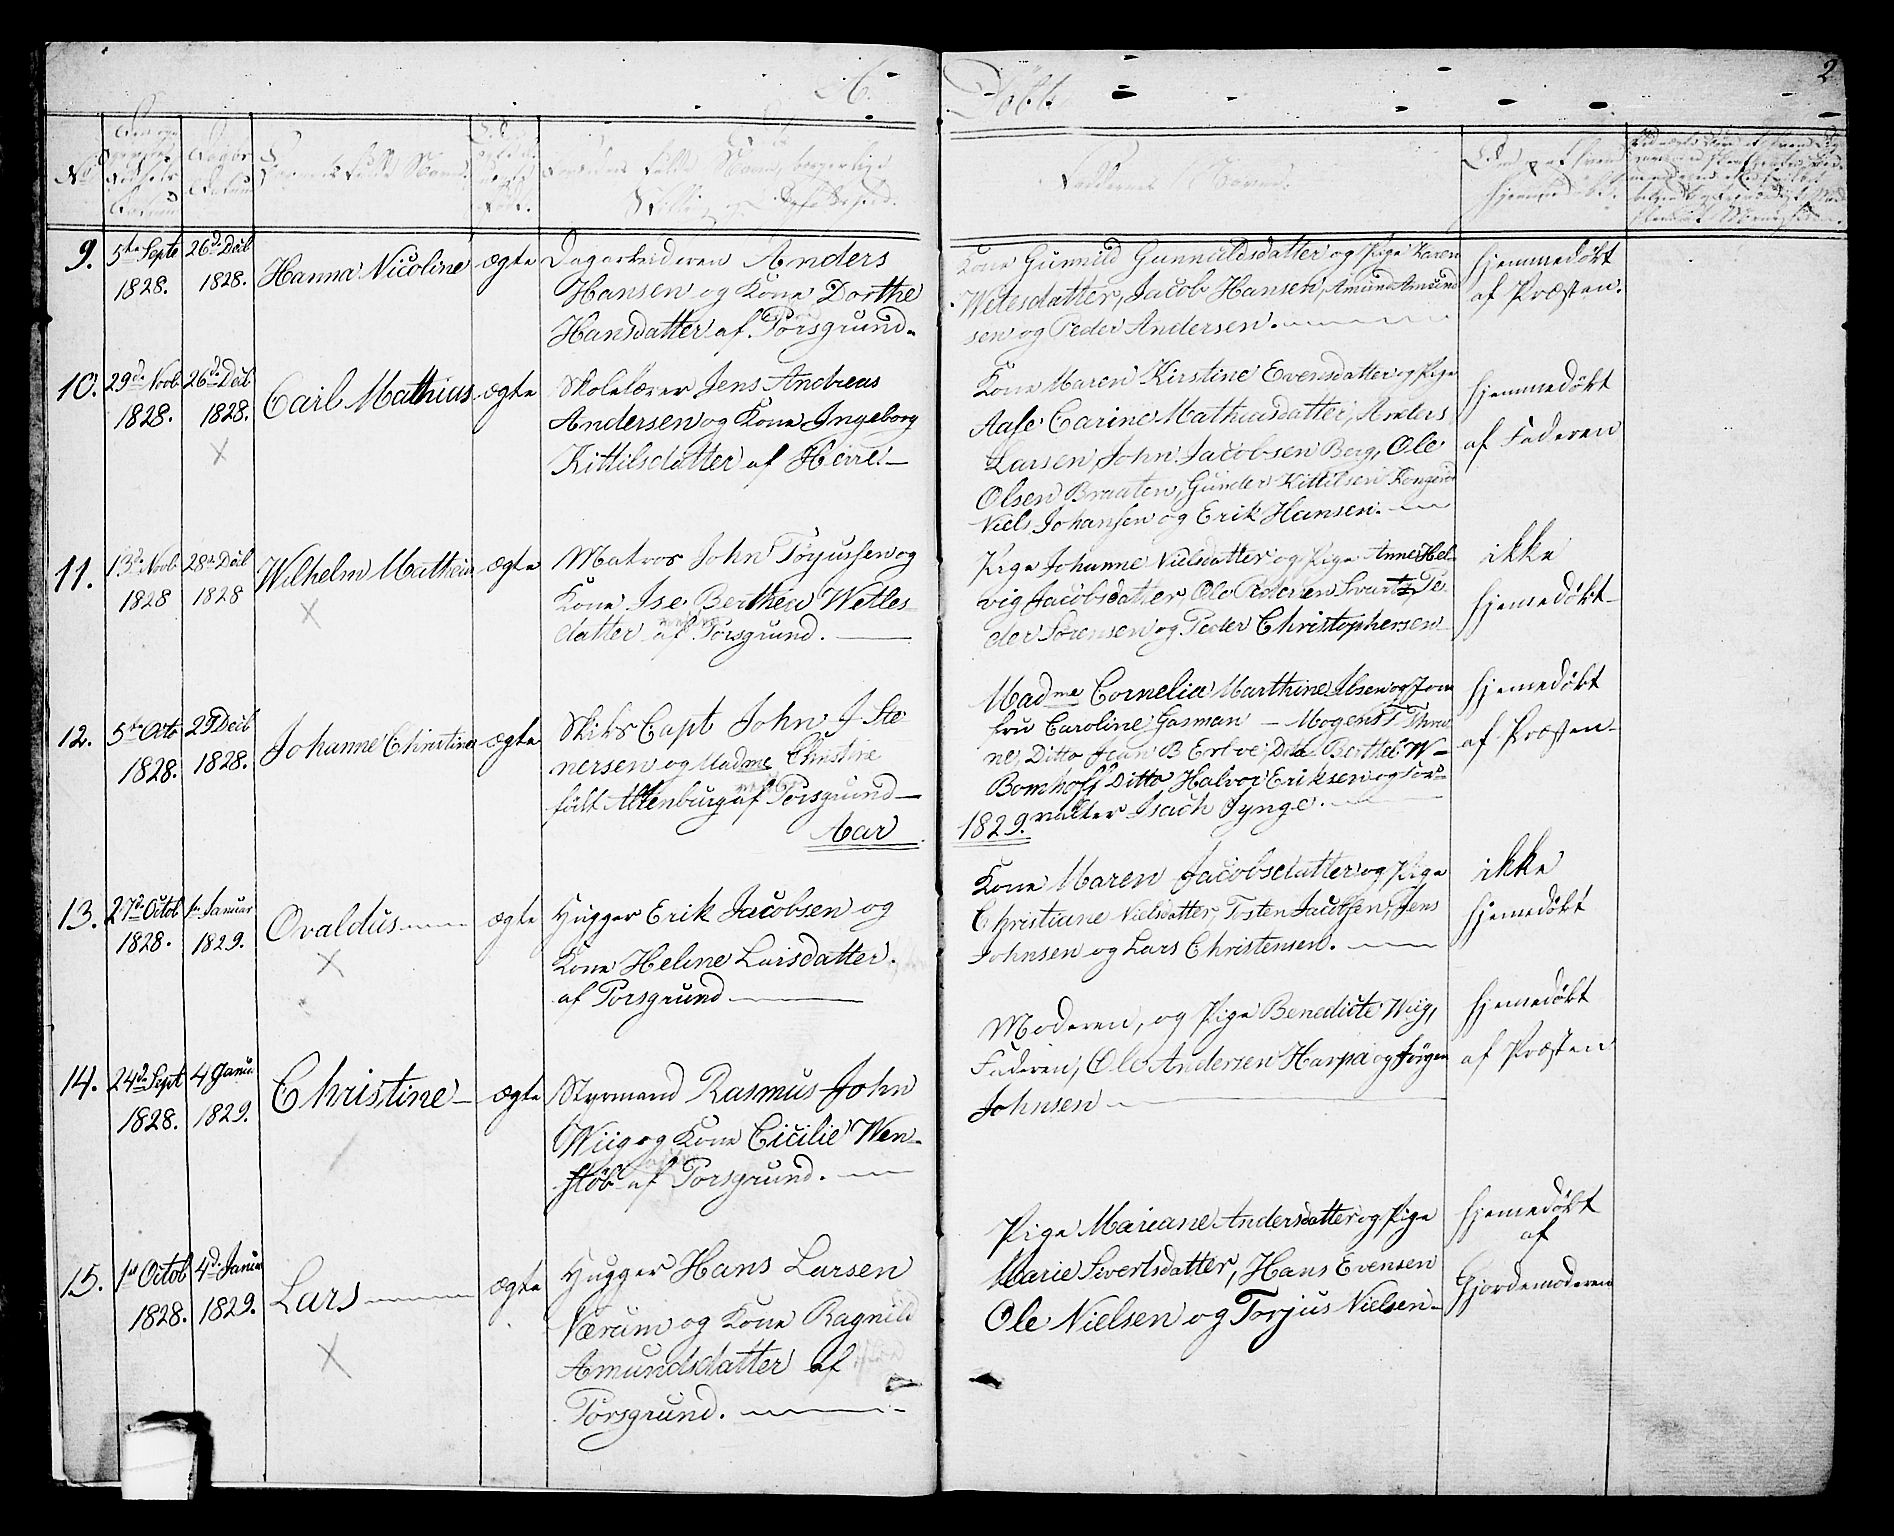 2
Døbte
No
Faddernes Navne.
9.
5te Septb
1828.
26d. Decb
1828.
Hanna Nicoline
ægte
Dagarbeideren Anders
Hansen og Kone Dorthe
Hansdatter af Porsgrund.
Kone Gunnild Gunnuldsdatter og Pige Karen
Wetlesdatter, Jacob Hansen, Amund Amund
sen og Peder Andersen.
hjemmedøbt
af Præsten.
10.
29d. Novb.
1828.
26d. Decb
1828.
Carl Mathius
ægte
Skolelærer Jens Andreas
Andersen og Kone Ingeborg
Kittilsdatter af Herre.
Kone Maren Kirstine Evensdatter og Pige
Aase Carine Mathiasdatter, Anders
Larsen, John Jacobsen Berg, Ole
Olsen Braaten, Gunder Kittilsen
Niels Johansen og Erik Hansen.
hjemmedøbt
af Faderen
11.
13d. Novb.
1828
28d. Decb
1828
Wilhelm Mathias
ægte
Matros John Torjussen og
Kone Ise Berthea Wetles
datter af Porsgrund.
Pige Johanne Nielsdatter og Pige Anne Hel
vig Jacobsdatter, Ole Pedersen Svartz, Pe
der Sørensen og Peder Christophersen
ikke
hjemedøbt
12.
5te Octb
1828.
29 Decb
1828.
Johanne Christine
ægte
Skibs Capt John J Ste
nersen og Madme Christine
født Altenburg af Porsgrund
Madme Cornelia Marthine Ilsen og Jom
fru Caroline Gasman - Mogens T Thra
ne, Ditto Jean B Erboe, Ditto Berthel W
Bomhoff, Ditto Halvor Eriksen og For
valter Isach Jynge.
hjemedøbt
af Præsten
Aar
1829.
13.
27d. Octob
1828.
1ste Januar
1829.
Ovaldus
ægte
Hugger Erik Jacobsen og
Kone Helene Larsdatter.
af Porsgrund
Kone Maren Jacobsdatter og Pige
Christiane Nielsdatter, Tosten Jacobsen, Jens
Johnsen og Lars Christensen.
ikke
hjemedøbt
14.
24d. Sept
1828.
4 Janu
1829.
Christine
ægte
Styrmand Rasmus John
Wiig og Kone Cicilie Wen
støb af Porsgrund.
Moderen, og Pige Benedicte Wiig,
Faderen, Ole Andersen Harpa og Jørgen
Johnsen
hjemedøbt
af Præsten
15.
1st Octob
1828.
4d. Janua
1829.
Lars
ægte
Hugger Hans Larsen
Værum og Kone Ragnild
Amundsdatter af
Porsgrund.
Pige Mariane Andersdatter og Pige
Marie Sivertsdatter, Hans Evensen
Ole Nielsen og Torjus Nielsen
hjemedøbt
af
Gjordemoderen